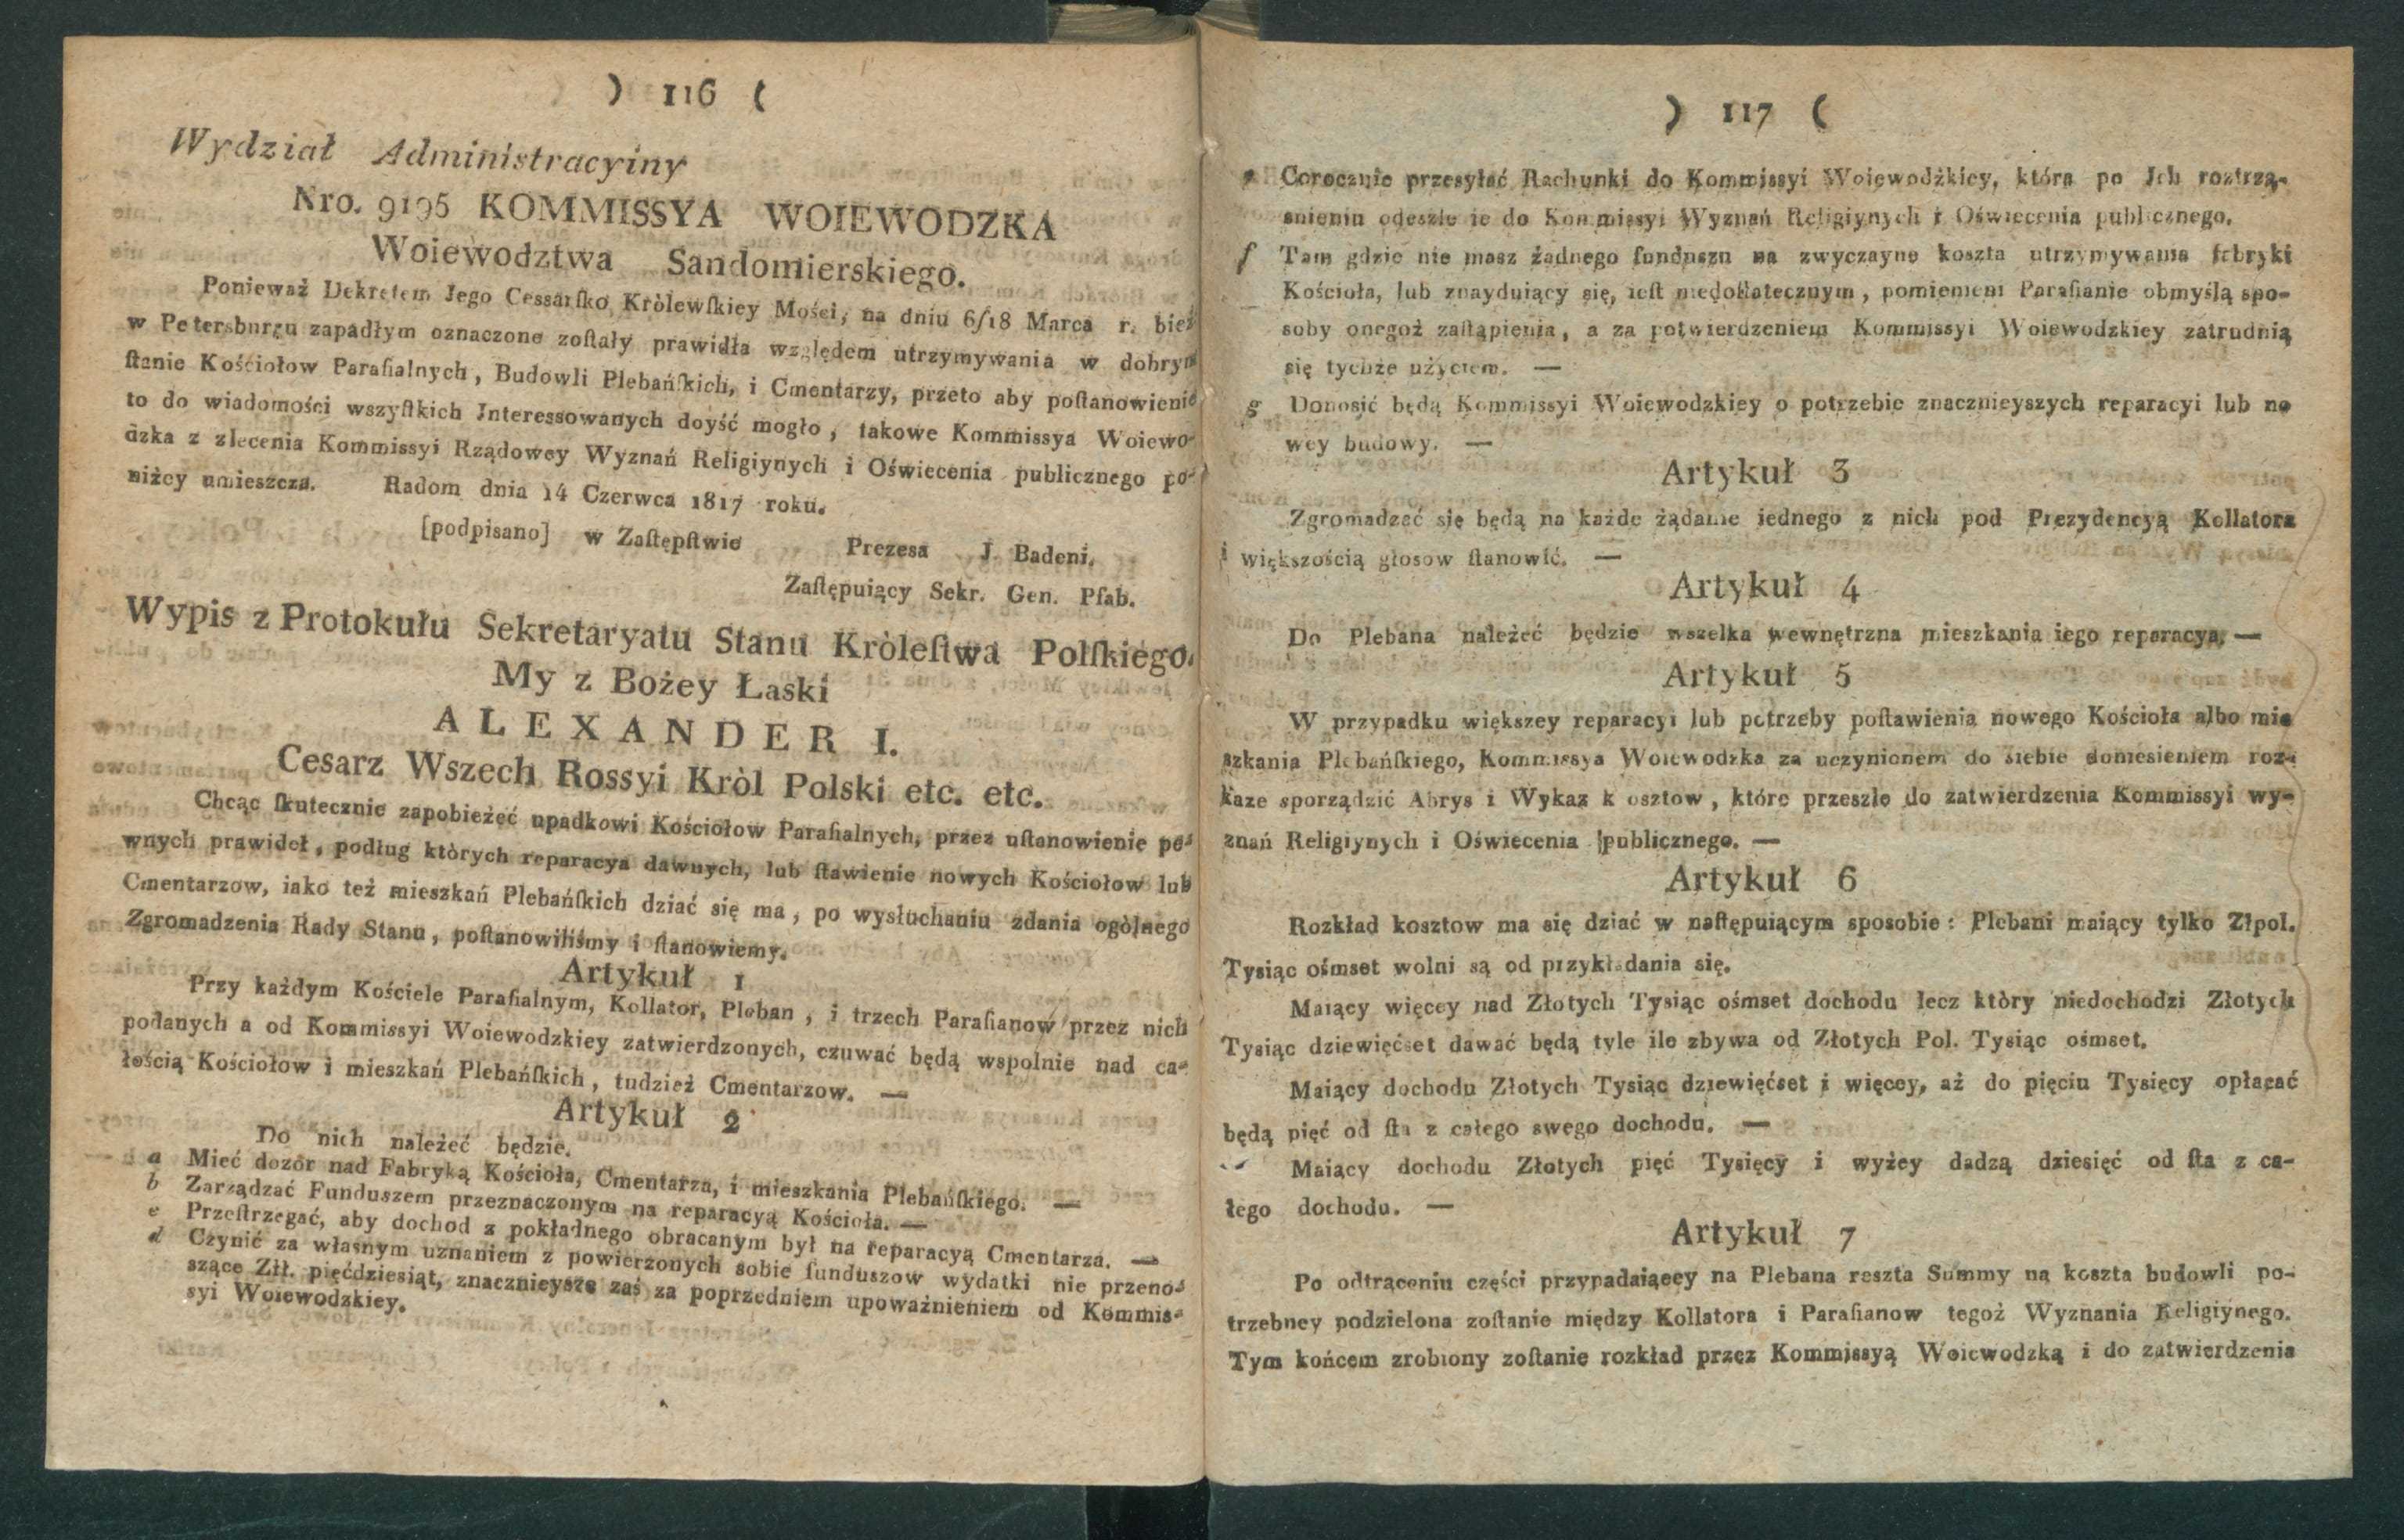 ) 116 (
Wydział Administracyiny
Nro. 9195 KOMMISSYA WOIEWODZKA
Woiewodztwa Sandomierskiego.
Ponieważ Dekretem Jego Cessarſko Kròlewſkiey Mości, na dniu 6/18 Marca r. bież
w Petersburgu zapadłym oznaczone zoſtały prawidła względem utrzymywania w dobrym
ſtanie Kościołow Parafialnych, Budowli Plebańſkich, i Cmentarzy, przeto aby poſtanowienie
to do wiadomości wszyſtkich Jnteressowanych doyść mogło, takowe Kommissya Woiewo-
dzka z zlecenia Kommissyi Rządowey Wyznań Religiynych i Oświecenia publicznego po-
niżey umieszcza. Radom dnia 14 Czerwca 1817 roku.
[podpisano] w Zaſtępſtwie Prezesa J Badeni.
Zaſtępuiący Sekr. Gen. Pſab.
Wypis z Protokułu Sekretaryatu Stanu Kròleſtwa Polſkiego.
My z Bożey Łaski
ALEXANDER I.
Cesarz Wszech Rossyi Kròl Polski etc. etc.
Chcąc ſkutecznie zapobieżeć upadkowi Kościołow Parafialnych, przez uſtanowienie pe-
wnych prawideł, podług ktòrych reparacya dawnych, lub ſtawienie nowych Kościołow lub
Cmentarzow, iako też mieszkań Plebańſkich dziać się ma, po wysłuchaniu zdania ogòlnego
Zgromadzenia Rady Stanu, poſtanowiliśmy i ſtanowiemy.
Artykuł 1
Przy każdym Kościele Parafialnym, Kollator, Pleban, i trzech Parafianow przez nich
podanych a od Kommissyi Woiewodzkiey zatwierdzonych, czuwać będą wspolnie nad ca-
łością Kościołow i mieszkań Plebańſkich, tudzież Cmentarzow. —
Artykuł 2
Do nich należeć będzie.
a Mieć dozór nad Fabryką Kościoła, Cmentarza, i mieszkania Plebańſkiego. —
b Zarządzać Funduszem przeznaczonym na reparacyą Kościoła. —
c Przeſtrzegać, aby dochod z pokładnego obracanym był na reparacyą Cmentarza. —
d Czynić za własnym uznaniem z powierzonych sobie funduszow wydatki nie przeno-
szące Złł. pięćdziesiąt, znacznieysze zaś za poprzedniem upoważnieniem od Kommis-
syi Woiewodzkiey.
) 117 (
e Corocznie przesyłać Rachunki do Kommissyi Woiewodżkiey, która po Jch roztrzą-
śnieniu odeszle ie do Kommissyi Wyznań Religiynych i Oświecenia publicznego.
f Tam gdzie nie masz żadnego funduszu na zwyczayne koszta utrzymywania fabryki
Kościoła, lub znayduiący się, ieſt niedoſtatecznym, pomienieni Parafianie obmyślą spo-
soby onegoż zaſtąpienia, a za potwierdzeniem Kommissyi Woiewodzkiey zatrudnią
się tychże użyciem. —
g Donosić będą Kommissyi Woiewodzkiey o potrzebie znacznieyszych reparacyi lub no
wey budowy. —
Artykuł 3
Zgromadzać się będą na każde żądanie iednego z nich pod Prezydencyą Kollatora
i większością głosow ſtanowić. —
Artykuł 4
Do Plebana należeć będzie wszelka wewnętrzna mieszkania iego reparacya. —
Artykuł 5
W przypadku większey reparacyi lub potrzeby poſtawienia nowego Kościoła albo mie
szkania Plebańſkiego, Kommissya Woiewodzka za uczynionem do siebie doniesieniem roz-
każe sporządzić Abrys i Wykaz k osztow, które przeszle do zatwierdzenia Kommissyi wy-
znań Religiynych i Oświecenia publicznego. —
Artykuł 6
Rozkład kosztow ma się dziać w naſtępuiącym sposobie: Plebani maiący tylko Złpol.
Tysiąc ośmset wolni są od przykładania się.
Maiący więcey nad Złotych Tysiąc ośmset dochodu lecz ktòry niedochodzi Złotych
Tysiąc dziewięćset dawać będą tyle ile zbywa od Złotych Pol. Tysiąc ośmset.
Maiący dochodu Złotych Tysiąc dziewięćset i więcey, aż do pięciu Tysięcy opłacać
będą pięć od ſta z całego swego dochodu. —
Maiący dochodu Złotych pięć Tysięcy i wyżey dadzą dziesięć od ſta z ca-
łego dochodu. —
Artykuł 7
Po odtrąceniu części przypadaiącey na Plebana reszta Summy na koszta budowli po-
trzebney podzielona zoſtanie między Kollatora i Parafianow tegoż Wyznania Religiynego.
Tym końcem zrobiony zoſtanie rozkład przez Kommissyą Woiewodzką i do zatwierdzenia